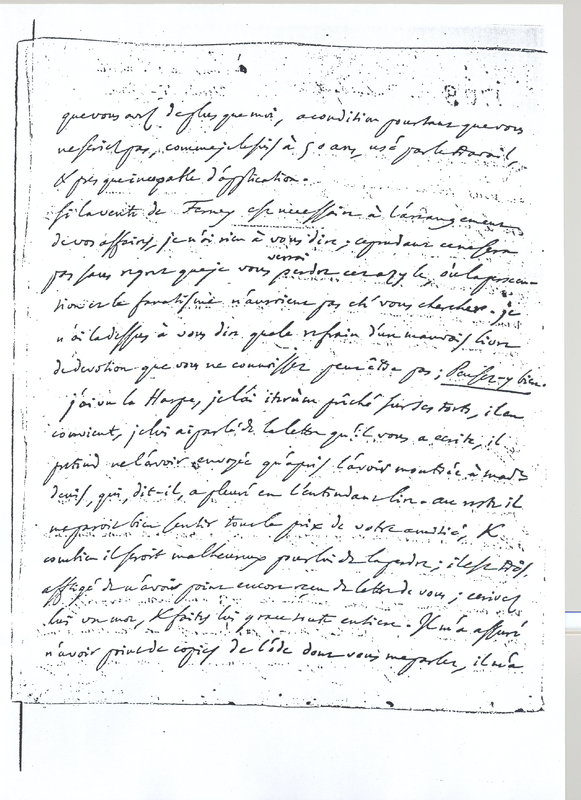 que vous avés de plus que moi, a condition pourtant que vous
ne seriés pas, comme je le suis à 50 ans, usé par le travail,
& presque incapable d'application.
Si la vente de Ferney est necessaire à l'arrangement
de vos affaires, je n'ai rien à vous dire; cependant ce ne sera
pas sans regret que je vous verrai perdre cet azyle, où la persecu-
tion et le fanatisme n'auroient pas eté vous chercher. je
n'ai la dessus à vous dire que le refrain d'un mauvais livre
de devotion que vous ne connoissez peut être pas; Pensez-y bien.
j'ai vu la Harpe, je l'ai itérum prêché sur ses torts, il en
convient, je lui ai parlé de la lettre qu'il vous a ecrite, il
pretend ne l'avoir envoyée qu'après l'avoir montrée à mad.e
denis, qui, dit-il, a pleuré en l'entendant lire. au reste il
me paroit bien sentir tout le prix de votre amitié, &
combien il seroit malheureux pour lui de la perdre; il est très
affligé de n'avoir point encore reçu de lettre de vous; ecrivez
lui un mot, & faites lui grace toute entiere. Il m'a assuré
n'avoir point de copies de l'ode dont vous me parlez, il m'a